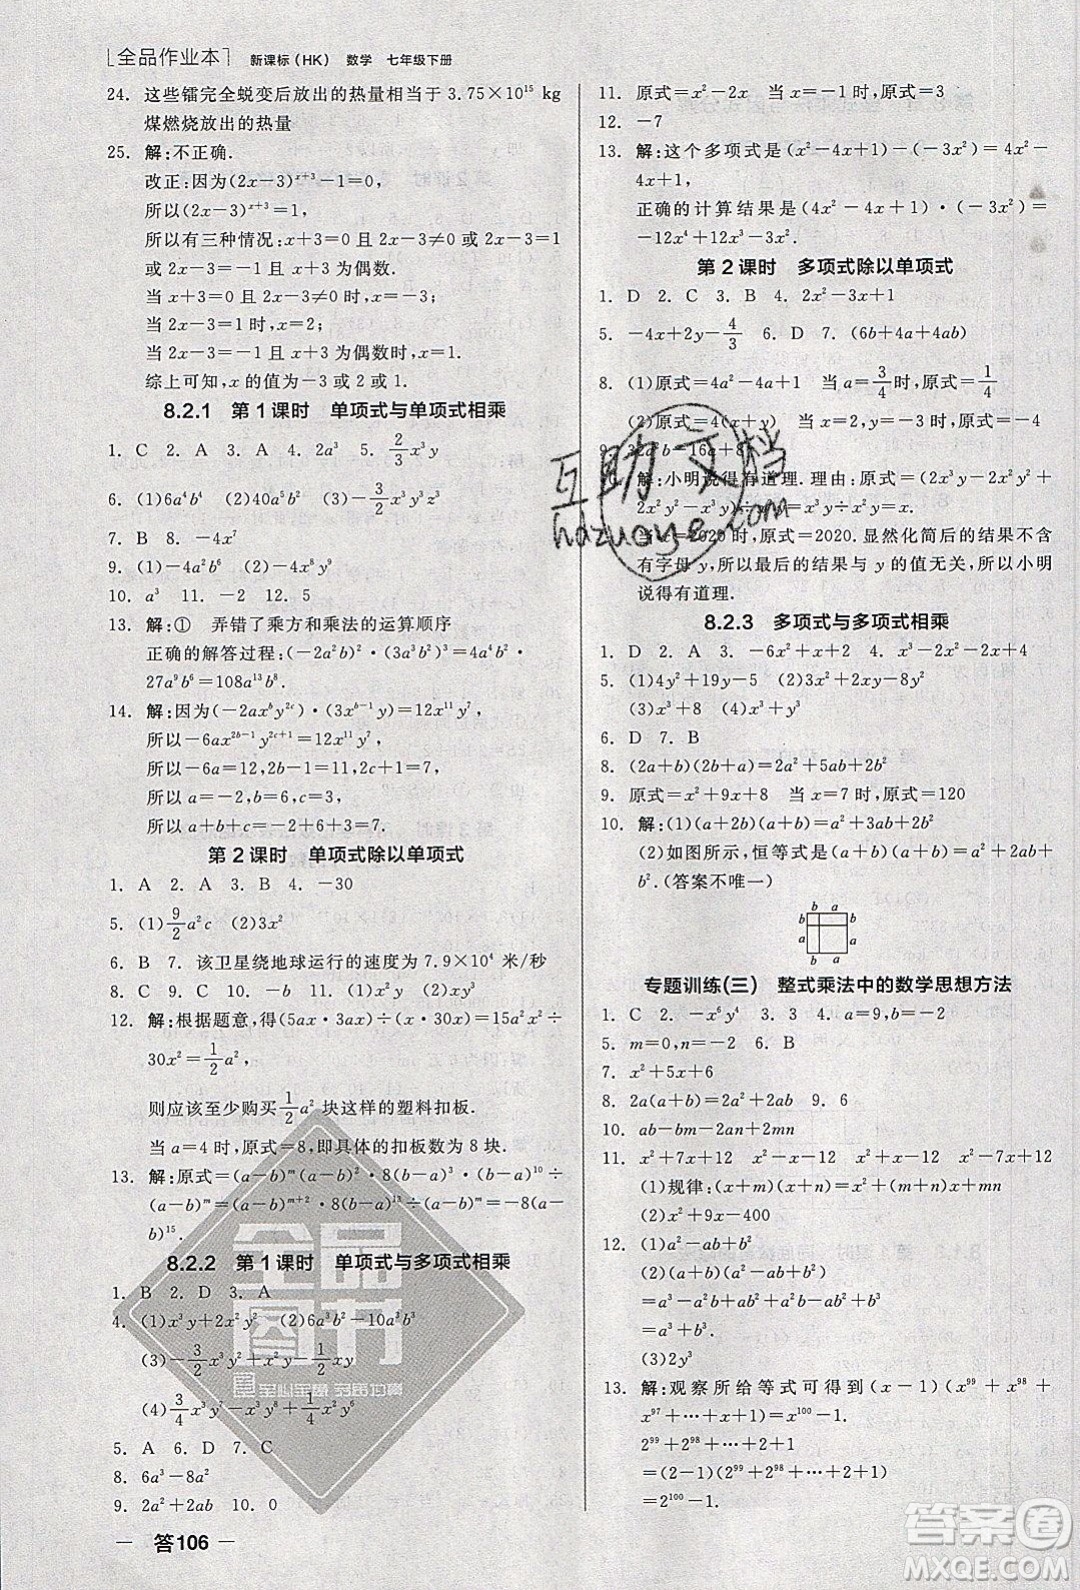 全品作业本 新课标(HK) 数学 七年级下册
24. 这些镭完全蜕变后放出的热量相当于 3.75×10¹⁵ kg
煤燃烧放出的热量
25. 解:不正确.
改正:因为(2x−3)ˣ⁺³−1=0,
所以(2x−3)ˣ⁺³=1,
所以有三种情况:x+3=0 且 2x−3≠0 或 2x−3=1
或 2x−3=−1 且 x+3 为偶数.
当 x+3=0 且 2x−3≠0 时,x=−3;
当 2x−3=1 时,x=2;
当 2x−3=−1 且 x+3 为偶数时,x=1.
综上可知,x 的值为−3 或 2 或 1.
8.2.1 第 1 课时 单项式与单项式相乘
1. C 2. A 3. A 4. 2a³ 5. 2/3x³y
6. (1)6a⁴b⁴ (2)40a⁵b² (3)−3/2x³y³z³
7. B 8. −4x⁷
9. (1)−4a²b⁶ (2)−8x⁸y⁹
10. a³ 11. −2 12. 5
13. 解:① 弄错了乘方和乘法的运算顺序
正确的解答过程:(−2a²b)²·(3a³b²)³=4a⁴b²·
27a⁹b⁶=108a¹³b⁸.
14. 解:因为(−2axᵇy²ᶜ)·(3xᵇ⁻¹y)=12x¹¹y⁷,
所以−6ax²ᵇ⁻¹y²ᶜ⁺¹=12x¹¹y⁷,
所以−6a=12,2b−1=11,2c+1=7,
所以 a=−2,b=6,c=3,
所以 a+b+c=−2+6+3=7.
第 2 课时 单项式除以单项式
1. A 2. A 3. B 4. −30
5. (1)9/2a²c (2)3x²
6. B 7. 该卫星绕地球运行的速度为 7.9×10⁴ 米/秒
8. C 9. C 10. −2 11. 4
12. 解:根据题意,得(5ax·3ax)÷(x·30x)=15a²x²÷
30x²=1/2a²,
则应该至少购买1/2a² 块这样的塑料扣板.
当 a=4 时,原式=8,即具体的扣板数为 8 块.
13. 解:原式=(a−b)ᵐ(a−b)²·8(a−b)³·(a−b)¹⁰÷
(a−b)ᵐ=(a−b)²·8(b−a)¹³÷(b−a)ᵐ=−8(a−
b)¹⁵.
8.2.2 第 1 课时 单项式与多项式相乘
1. B 2. D 3. A
4. (1)x³y+2x²y (2)6a³b²−10a²b³
(3)−3/2x³y²+x²y−1/2xy
(4)3/4x³y²−1/2x²y⁶
5. A 6. D 7. C
8. 6a³−8a²
9. 2a²+2ab 10. 0
— 答106 —
11. 原式=x²−2x 当 x=−1 时,原式=3
12. −7
13. 解:这个多项式是(x²−4x+1)−(−3x²)=4x²−
4x+1,
正确的计算结果是(4x²−4x+1)·(−3x²)=
−12x⁴+12x³−3x².
第 2 课时 多项式除以单项式
1. D 2. C 3. B 4. 2x²−3x+1
5. −4x+2y−4/3 6. D 7. (6b+4a+4ab)
8. (1)原式=4a²−4a+1 当 a=3/4时,原式=1/4
(2)原式=4(x+y) 当 x+y=−1 时,原式=−4
解:小明说得有道理.理由:原式=(2x³y−
2x²y²+2x²y²−x³y)÷x²y=x³y÷x²y=x.
当 x=2020 时,原式=2020.显然化简后的结果不含
有字母 y,所以最后的结果与 y 的值无关,所以小明
说得有道理.
8.2.3 多项式与多项式相乘
1. D 2. A 3. −6x²+x+2 4. x³−x²−2x+4
5. (1)4y²+19y−5 (2)−2x²+7xy−3y²
(3)x³−8 (4)x³+y³
6. D 7. D
8. (2a+b)(a+2b)=2a²+5ab+2b²
9. 原式=x²+9x+8 当 x=7 时,原式=120
10. 解:(1)(a+2b)(2a+b)=2a²+5ab+2b²
(2)如图所示,恒等式是(a+b)(a+b)=a²+2ab+
b².(答案不唯一)
b a
b b
a a
b a
专题训练(三) 整式乘法中的数学思想方法
1. C 2. −x⁶y⁴ 3. 3 4. a=9,b=−2
5. m=0,n=−2 6. B
7. x²+5x+6
8. 2a(a+b)=2a²+2ab 9. 6
10. ab−bm−2an+2mn
11. x²+7x+12 x²−x−12 x²−7x+12
(1)规律:(x+m)(x+n)=x²+(m+n)x+mn
(2)x²+9x−400
12. (1)(a²−ab+b²)
(2)(a+b)(a²−ab+b²)
=a³−a²b+ab²+a²b−ab²+b³
=a³+b³.
(3)2y³
13. 解:观察所给等式可得:(x−1)(x⁹⁹+x⁹⁸+
x⁹⁷+…+x+1)=x¹⁰⁰−1.
2⁹⁹+2⁹⁸+2⁹⁷+…+2+1
=(2−1)(2⁹⁹+2⁹⁸+2⁹⁷+…+2+1)
=2¹⁰⁰−1.
互助文档
hdzuoye.com
全品图书
答案圈
MXQE.COM